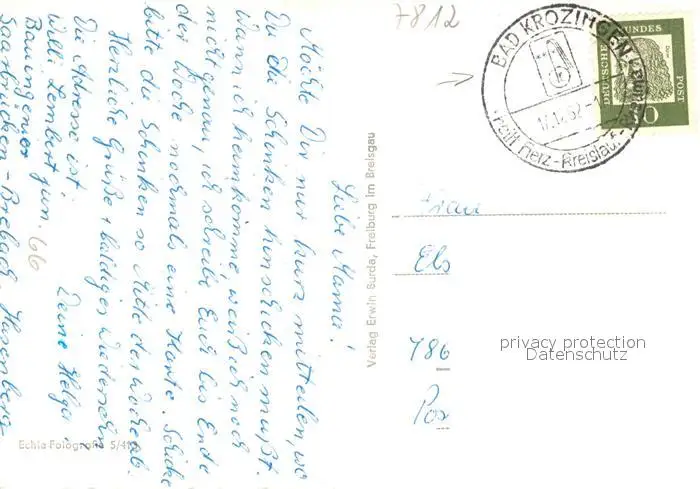 7812
BAD KROZINGEN
heilt Herz-Kreislauf-
DEUTSCHE BUNDESPOST
Liebe Mama!
Möchte Dir nur kurz mitteilen, wo
Du die Schinken hinschicken mußt.
Wann ich heimkomme, weiß ich noch
nicht genau, ich schreibe Euch bis Ende
der Woche nochmals eine Karte. Schicke
bitte die Schinken so Mitte der Woche ab.
Herzliche Grüße + baldiges Wiedersehn
Deine Helga.
Die Adresse ist:
Willi Lembert jun.
Bauingenieur 66
Saarbrücken - Brebach,
Verlag Erwin Burda, Freiburg im Breisgau
Frau
Els
786
privacy protection
Datenschutz
Echte Fotografie 5/41